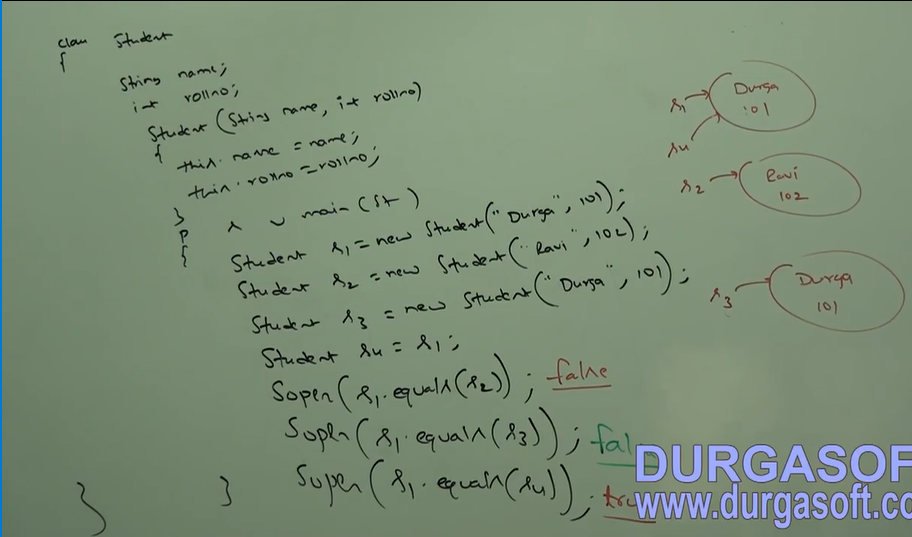 class Student
{
String name;
int rollno;
Student (String name, int rollno)
{
this.name = name;
this.rollno = rollno;
}
p s v main (St )
{
Student s1 = new Student("Durga", 101);
Student s2 = new Student("Ravi", 102);
Student s3 = new Student("Durga", 101);
Student s4 = s1;
Sopln(s1.equals(s2)); false
Sopln(s1.equals(s3)); fal
Sopln(s1.equals(s4)); tru
}
}
s1
Durga
101
s4
s2
Ravi
102
s3
Durga
101
DURGASOF
www.durgasoft.co